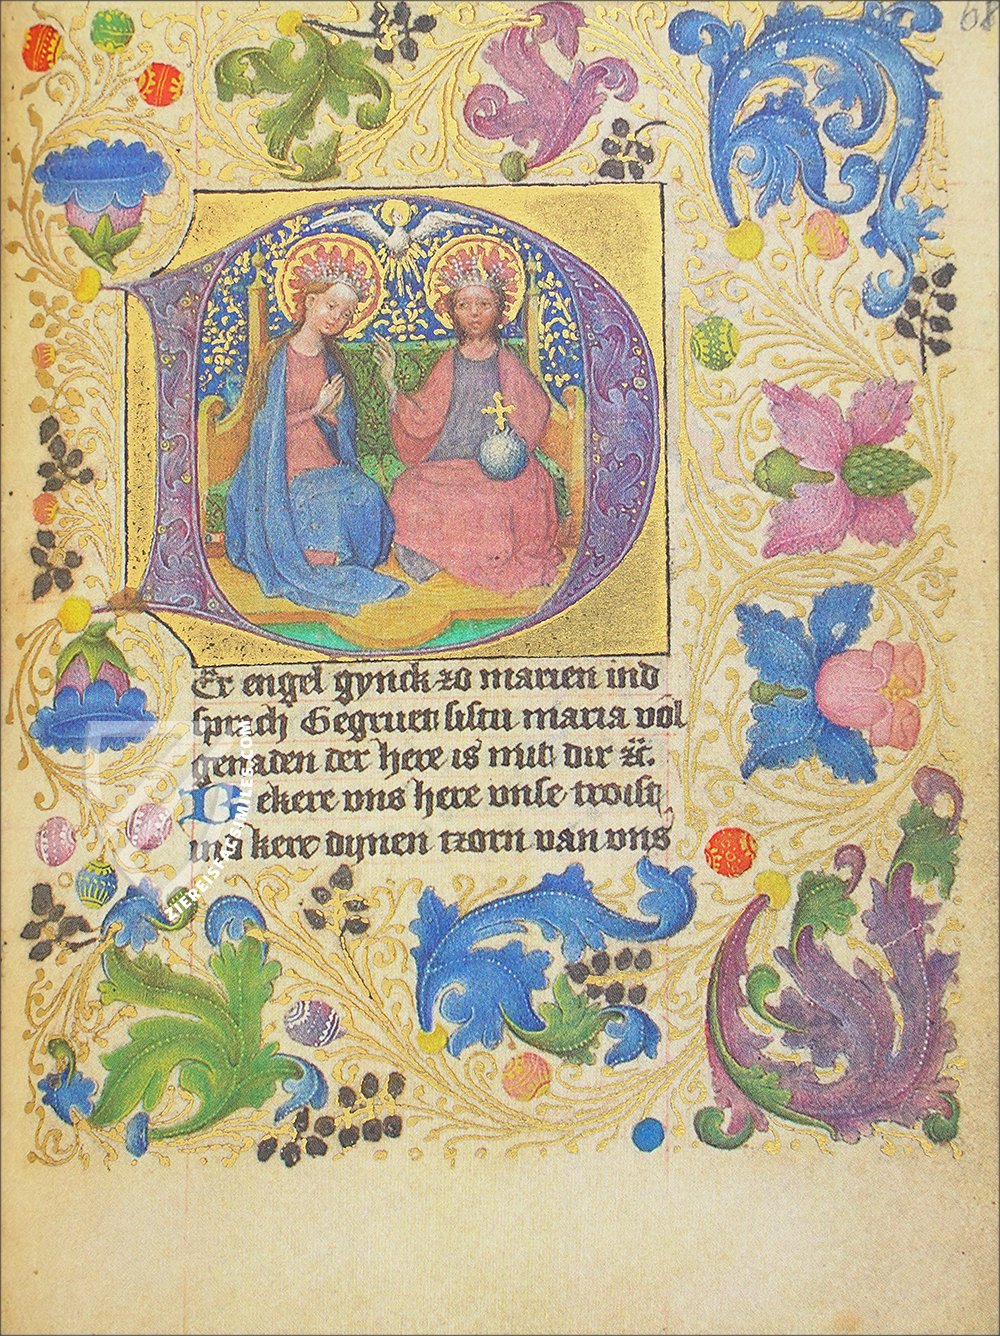 68
DEr engel gynck zo marien ind
sprach Gegruet sistu maria vol
genaden der here is mit dir ꝛc.
Bekere vns here vnse troist
ind kere dynen tzorn van vns
ZIEREIS FACSIMILES.COM